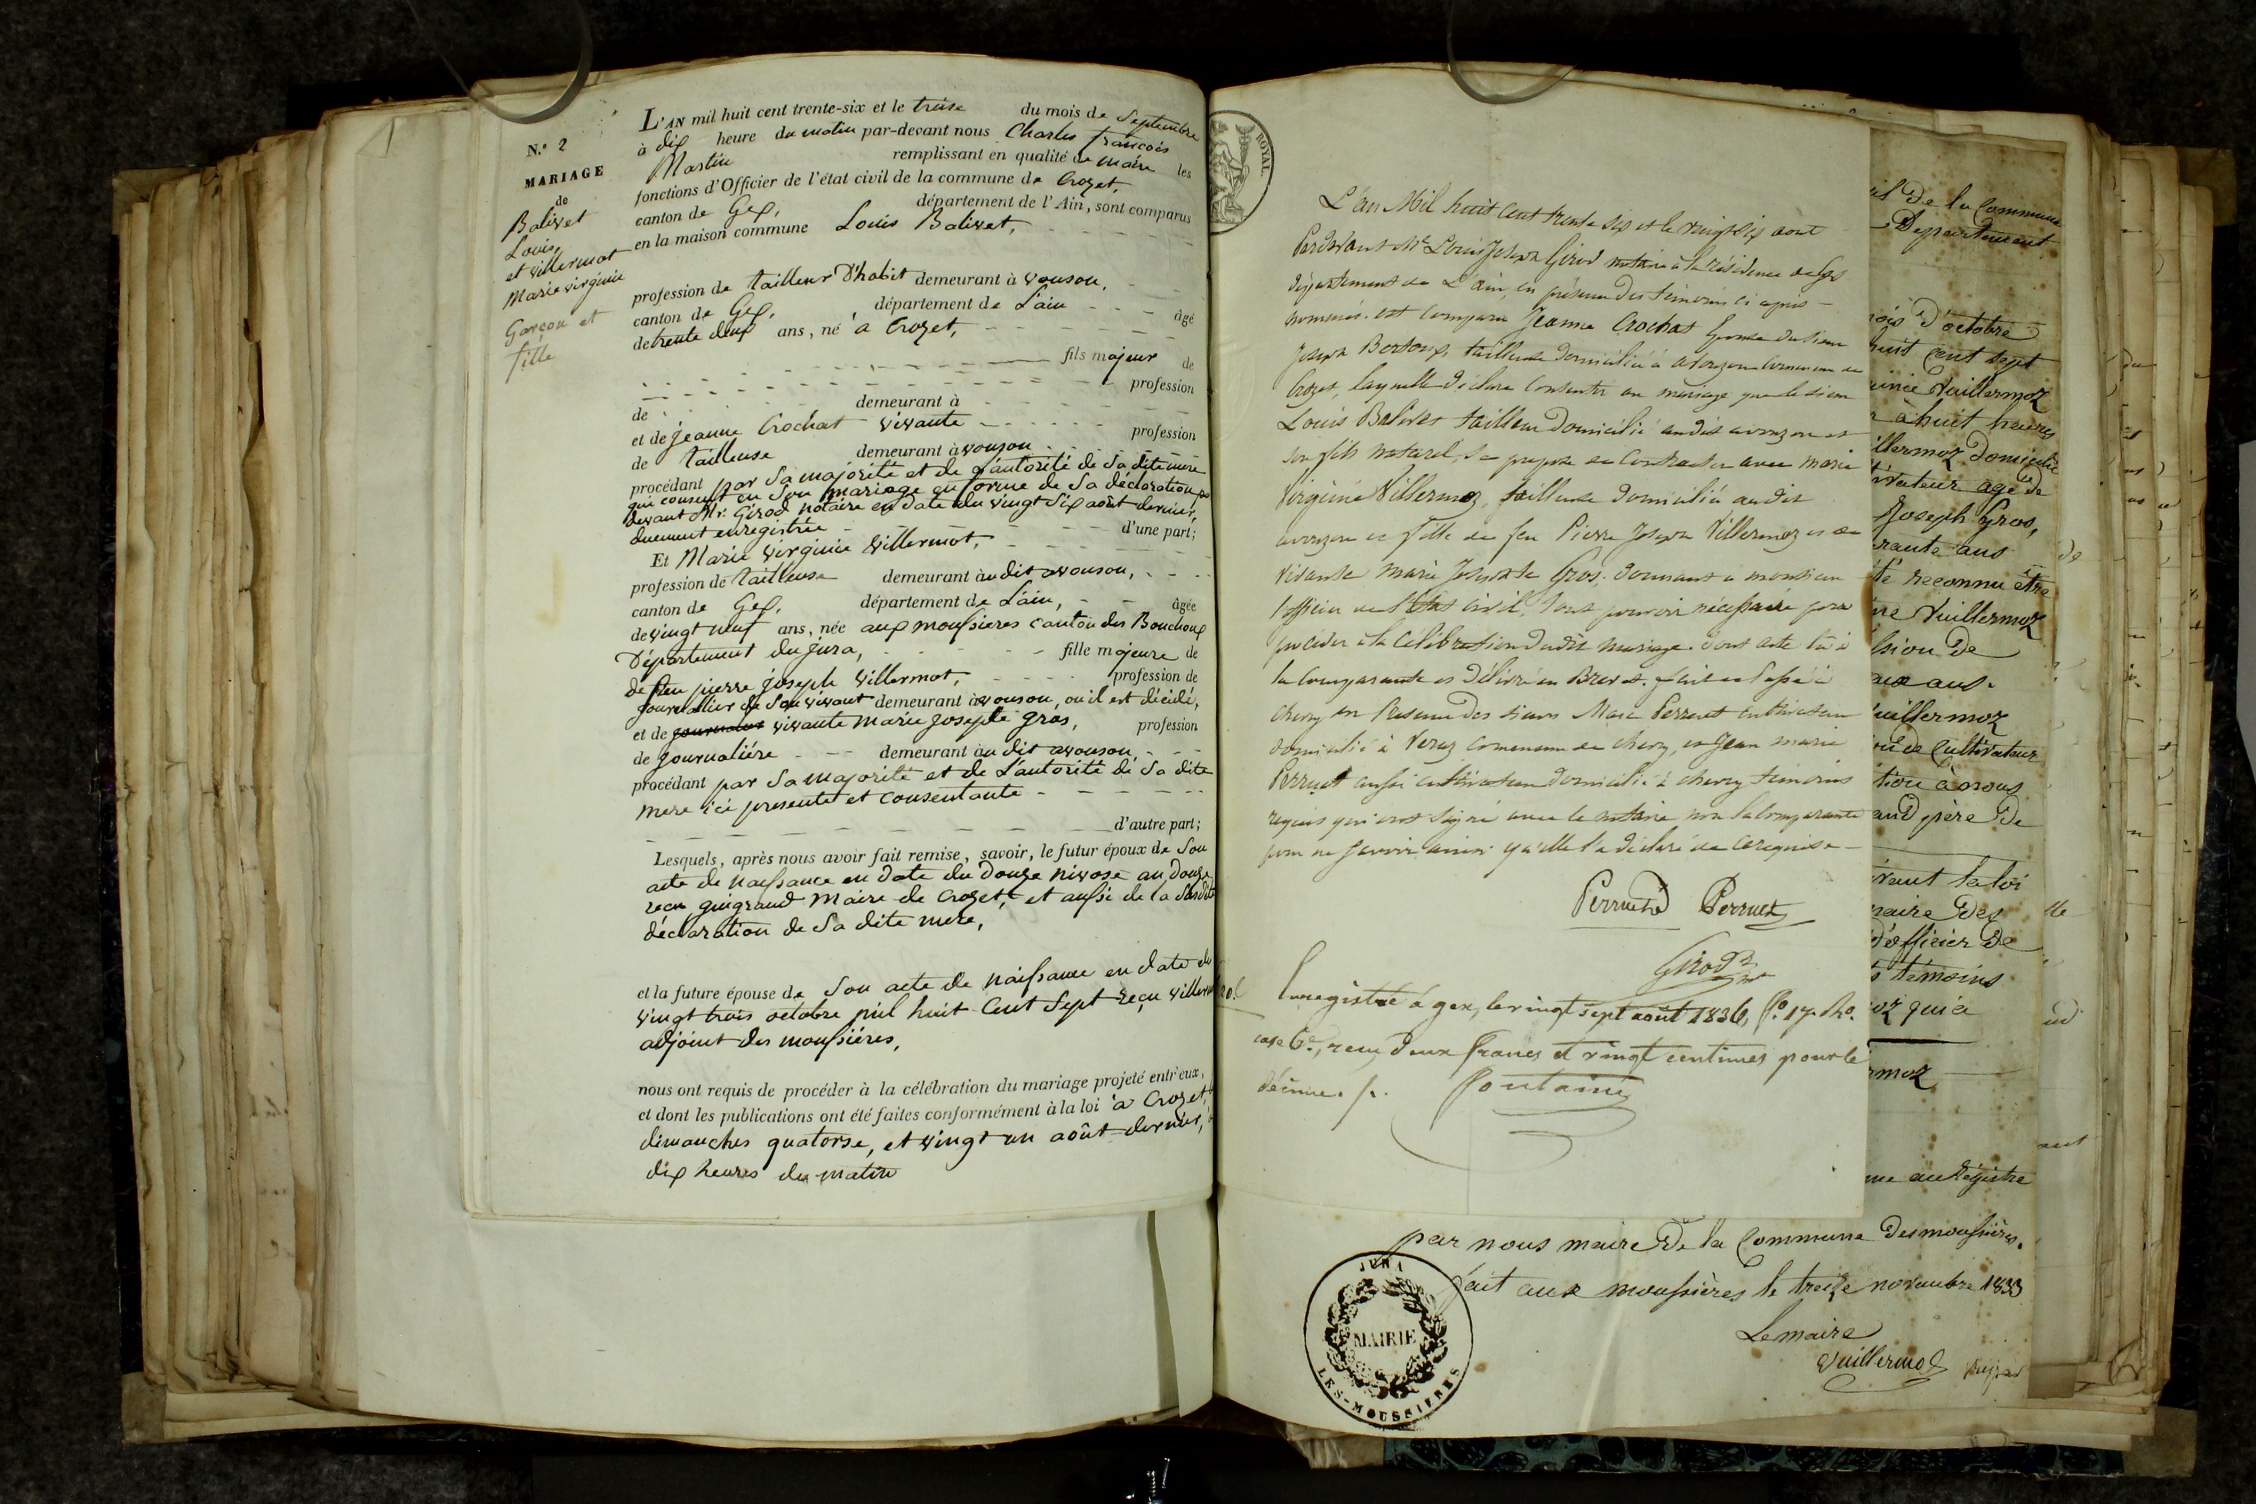 N.º 2
MARIAGE
de
Balivet
Louis,
et Villermot
Marie virginie
Garçon et
fille
L'AN mil huit cent trente-six et le treise du mois de Septembre
à dix heure du matin par-devant nous Charles françois
Martin remplissant en qualité de maire les
fonctions d'Officier de l'état civil de la commune de Crozet,
canton de Gex, département de l'Ain, sont comparus
en la maison commune Louis Balivet,
profession de tailleur d'habit demeurant à vouson,
canton de Gex, département de L'ain âgé
de trente deux ans, né à Crozet,
fils majeur de
profession
de demeurant à
et de jeanne Crochat vivante profession
de tailleuse demeurant à vouson
procédant par sa majorité et de l'autorité de sa dite mere
qui consent en son mariage en forme de sa déclaration
devant Mr. Girod notaire en date du vingt six août dernier,
duement enregistrée d'une part;
Et Marie virginie villermot,
profession de tailleuse demeurant au dit avouson,
canton de Gex, département de L'ain, âgée
de vingt neuf ans, née aux moussieres canton des Bouchoux
Département du jura, fille majeure de
de feu pierre joseph villermot, profession de
journalier de son vivant demeurant à vouson, ou il est décédé,
et de vivante marie josephte gros, profession
de journalière demeurant au dit avouson
procédant par sa majorité et de L'autorité de sa dite
mere ici presente et consentante
d'autre part;
Lesquels, après nous avoir fait remise, savoir, le futur époux de son
acte de naissance en date du douze nivose an douze
recu guigrand maire de crozet, et aussi de la susdite
déclaration de sa dite mere,
et la future épouse de son acte de naissance en date du
vingt trois octobre mil huit cent sept reçu viller
adjoint des moussières,
nous ont requis de procéder à la célébration du mariage projeté entr'eux,
et dont les publications ont été faites conformément à la loi à Crozet,
dimanches quatorse, et vingt un août dernier,
dix heures du matin
ROYAL
L'an Mil huit cent trente six et le vingt six aout
Pardevant Me Louis Joseph Girod notaire à la résidence de Gex
département de L'ain, en présence des témoins ci après
nommés. est comparu Jeanne Crochat Epouse du sieur
Joseph tailleuse domiciliée à avouzon commune de
Crozet, laquelle déclare consentir au mariage que le sieur
Louis Balivet tailleur domicilié audit avouzon et
son fils naturel, se propose de contracter avec marie
Virginie Villermoz, tailleuse domiciliée audit
avouzon et fille de feu Pierre Joseph Villermoz et de
vivante marie Josephte Gros. donnant a monsieur
l'officier de l'état civil, tout pouvoir nécessaire pour
procéder à la célébration dudit mariage. dont acte lu à
la comparante et délivré en Brevet. fait et passé à
chevry en Presence des sieurs Marc Perruet cultivateur
domicilié à Veraz commune de chevry, et Jean marie
Perruet aussi cultivateur domicilié à chevry témoins
requis qui ont signé avec le notaire non la comparante
pour ne savoir ainsi qu'elle l'a déclaré de ce requise
Perruet
Girod
Enregistré à gex, le vingt sept août 1836, fo. 17. Ro.
case 6e., reçu deux francs et vingt centimes pour le
décime.
Fontaine
de la Commune
Département
mois d'octobre
huit cent sept
Vuillermoz
à huit heures
domicilié
agé de
Joseph Gros,
ans
reconnu être
Vuillermoz
de
ans.
Vuillermoz
Cultivateur
à nous
grand père de
la loi
maire des
d'officier de
témoins
qui a
au Régistre
par nous maire de la Commune des moussières.
fait aux moussières le treize novembre 1833
Le maire
Vuillermoz
JURA
MAIRIE
LES-MOUSSIERES